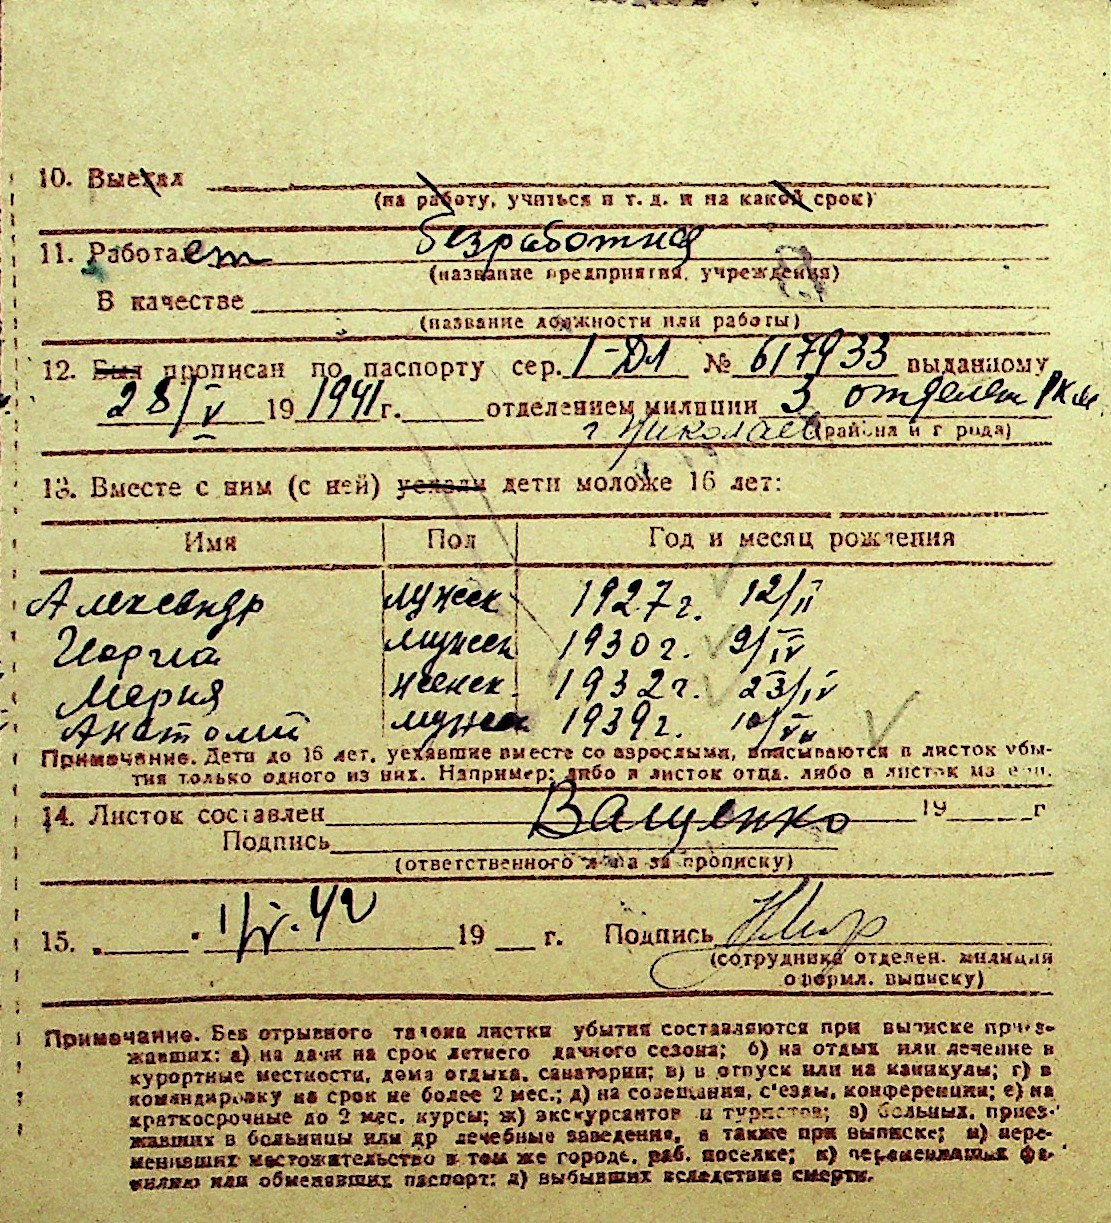 10. Выехал
(на работу, учиться и т. д. и на какой срок)
11. Работает безработная
(название предприятия, учреждения)
В качестве
(название должности или работы)
12. Был прописан по паспорту сер. I-ДЛ № 617933 выданному
28/V 19 1941 г. отделением милиции 3 отделен РКМ
г Николаев (района и города)
13. Вместе с ним (с ней) уехали дети моложе 16 лет:
Имя Пол Год и месяц рождения
Александр мужск 1927 г. 12/II
мужск 1930 г. 9/IV
Мария женск. 1932 г. 23/IV
Анатолий мужск 1939 г.
Примечание. Дети до 16 лет, уехавшие вместе со взрослыми, вписываются в листок убы-
тия только одного из них. Например: либо в листок отца, либо в листок матери.
14. Листок составлен Ващенко 19 г
Подпись
(ответственного лица за прописку)
15. " " 1/V. 42 19 г. Подпись
(сотрудника отделен. милиции
оформл. выписку)
Примечание. Без отрывного талона листки убытия составляются при выписке приез-
жавших: а) на дачи на срок летнего дачного сезона; б) на отдых или лечение в
курортные местности, дома отдыха, санатории; в) в отпуск или на каникулы; г) в
командировку на срок не более 2 мес.; д) на совещания, с'езды, конференции; е) на
краткосрочные до 2 мес. курсы; ж) экскурсантов и туристов; з) больных, приез-
жавших в больницы или др лечебные заведения, а также при выписке; и) пере-
менивших местожительство в том же городе, раб. поселке; к) переменивших фа-
милию или обменявших паспорт; л) выбывших вследствие смерти.